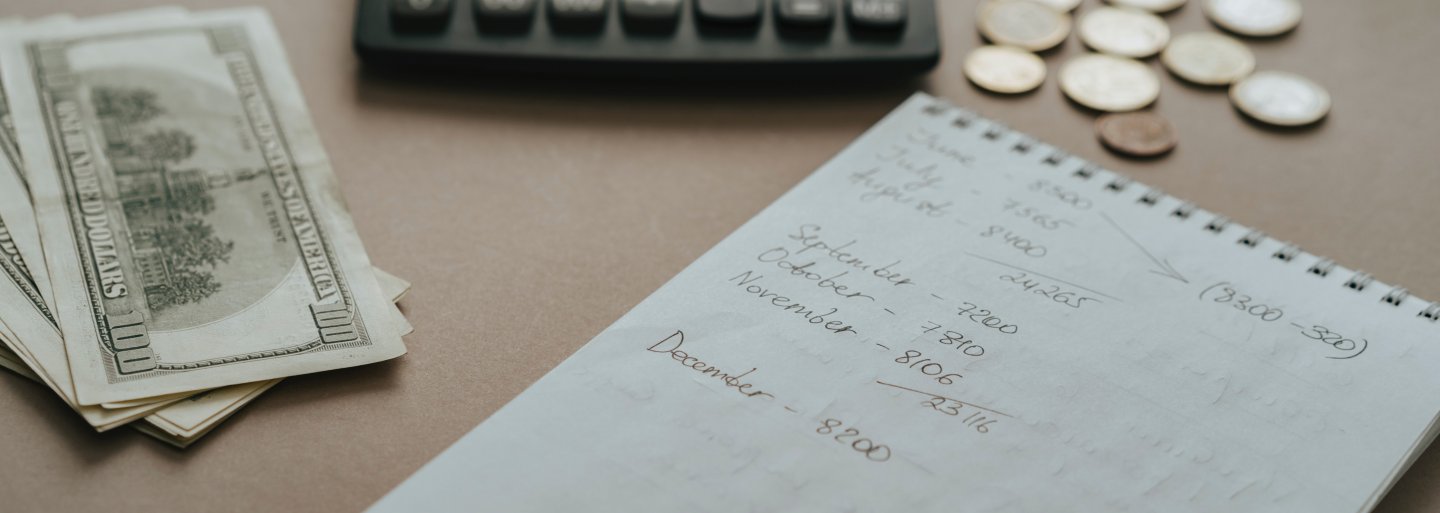 THE UNITED STATES OF AMERICA
WE TRUST
ONE HUNDRED DOLLARS
100
100
June - 8500
July - 7565
August - 8400
24265
(8300 - 320)
September - 7200
October - 7810
November - 8106
23116
December - 8200